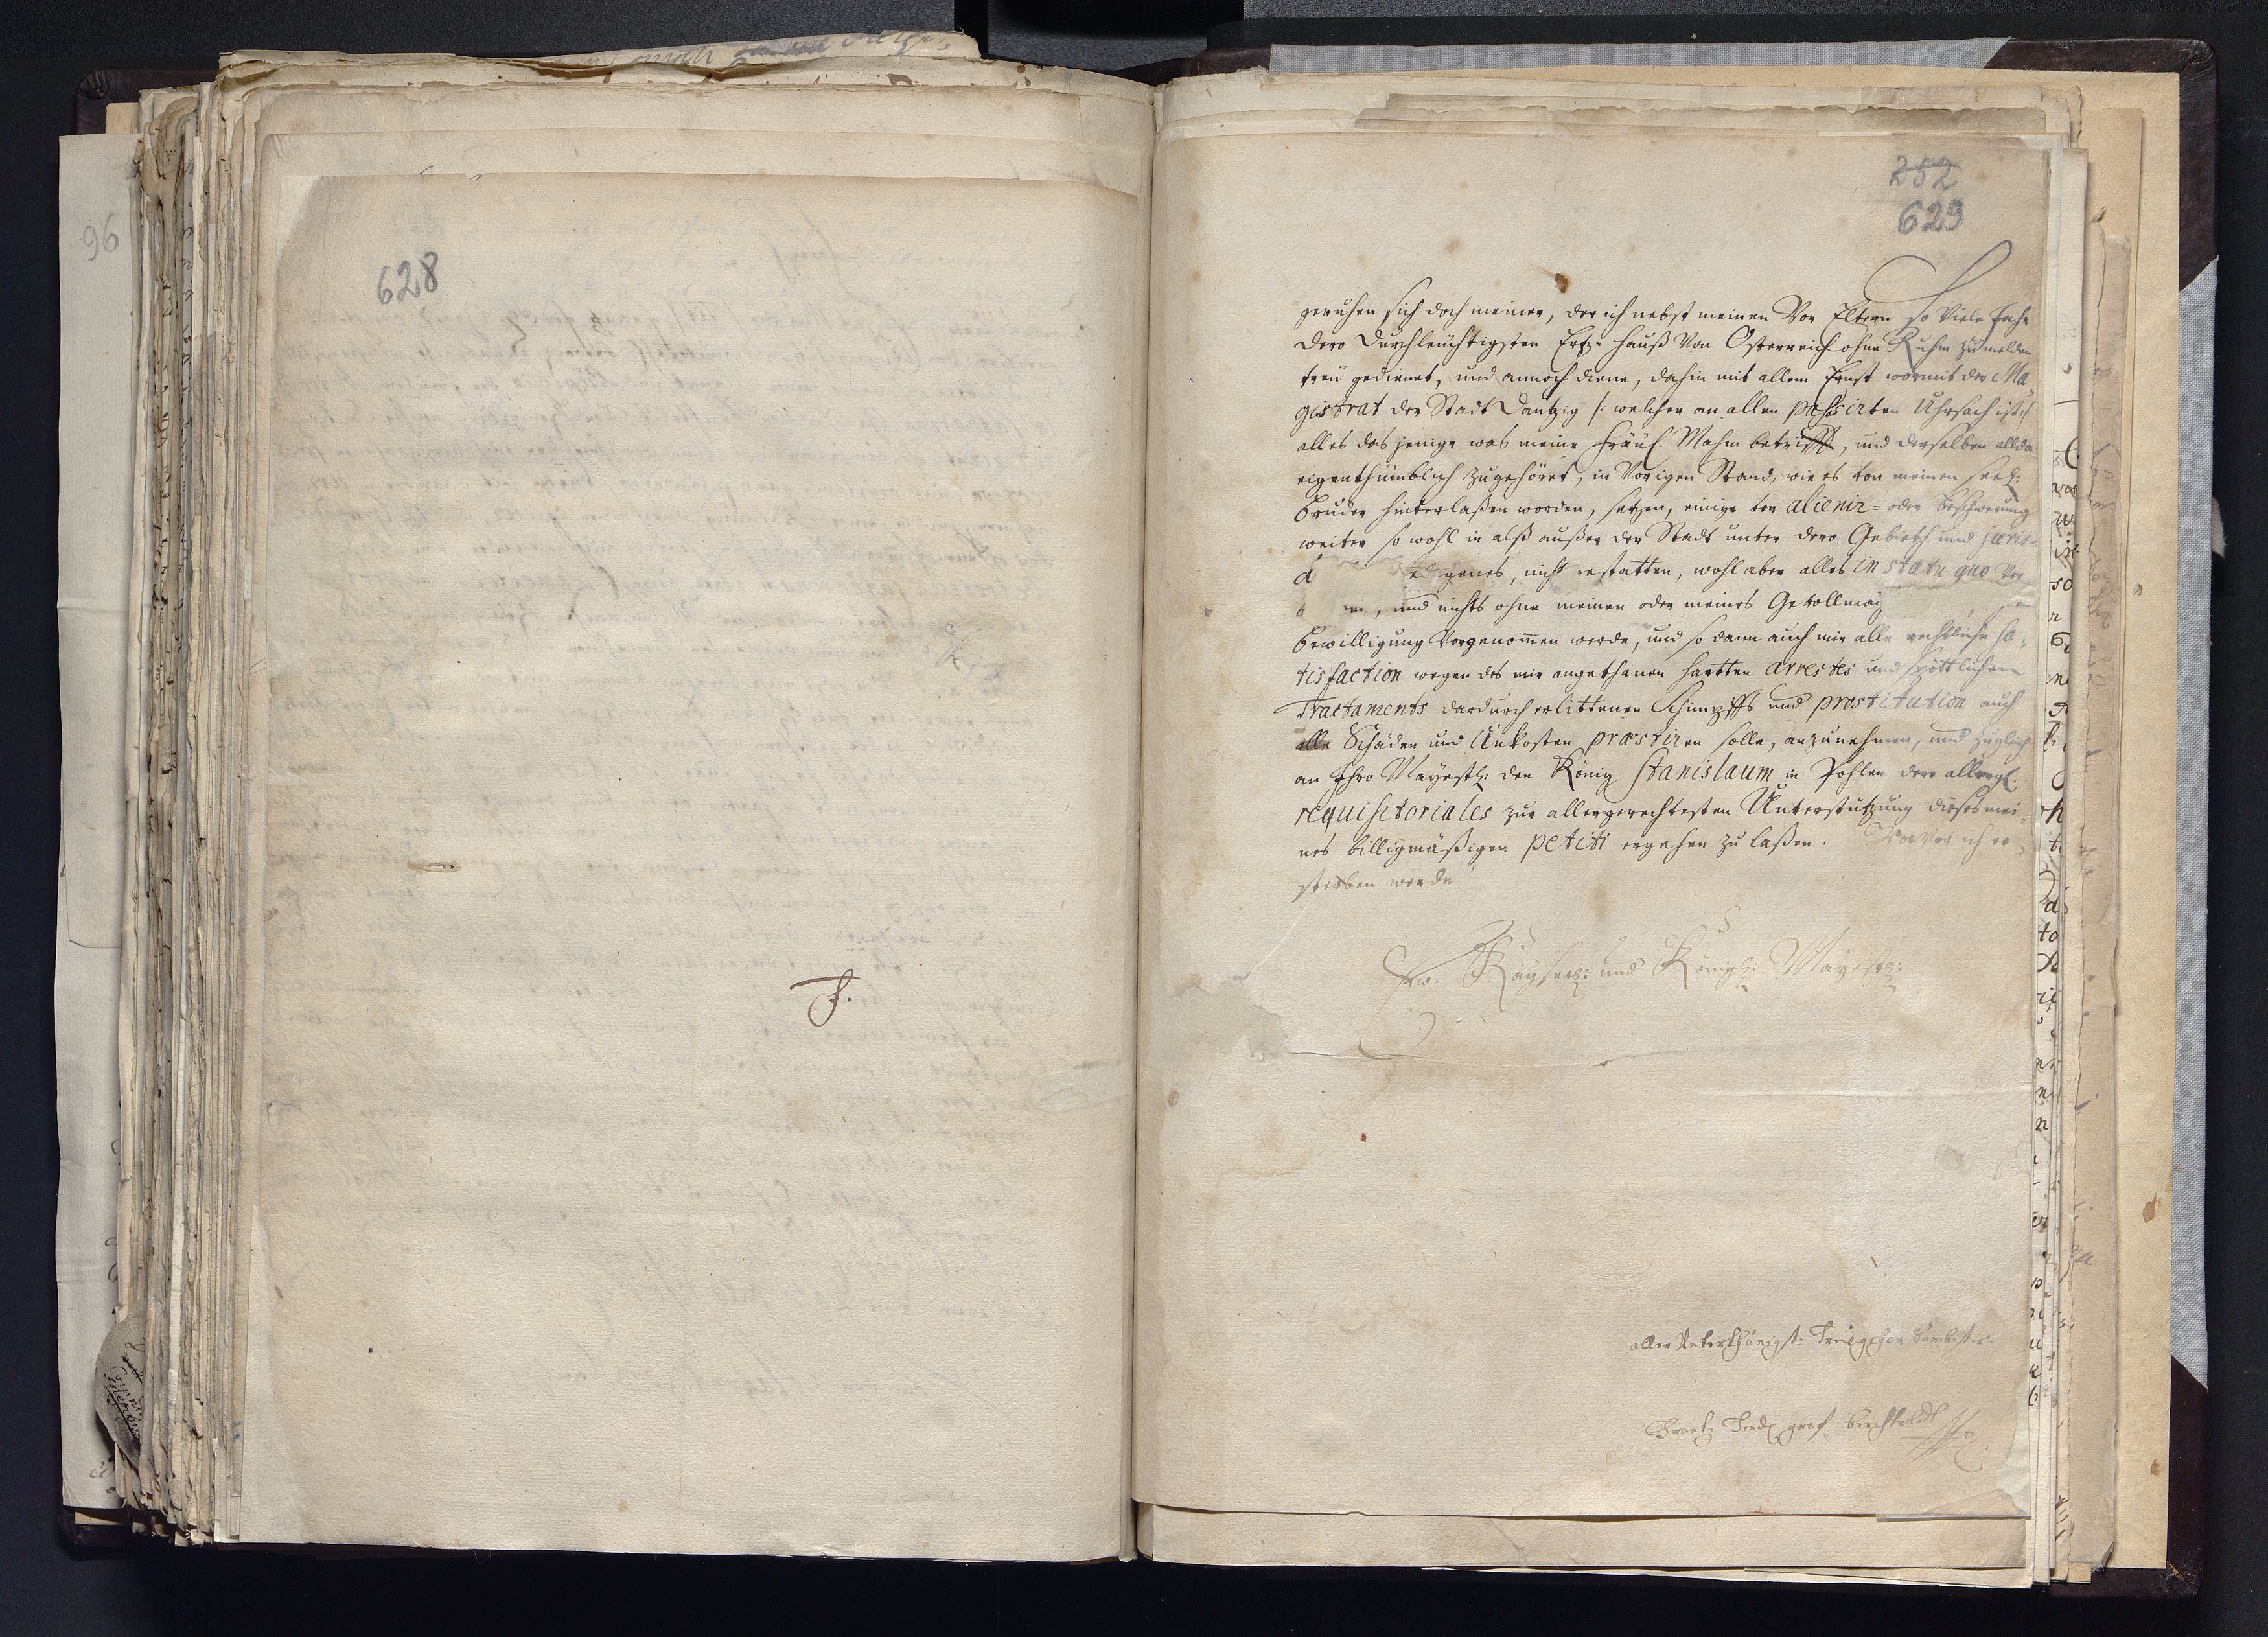 96
628
F.
252
629
geruhen sich doch meiner, der ich nebst meinen Vor Eltern so viele Jahr
dero Durchleüchtigsten Ertz- Hauß Von Österreich ohne Ruhm zu melden
treü gedienet, und annoch diene, dahin mit allem Ernst wormit der Ma-
gistrat der Stadt Dantzig /: welcher an allen passirten Uhrsach ist :/
alles das jenige was meine Mahm betrifft, und derselben allda
eigenthümblich zugehöret, in Vorigen Stand, wie es von meinen seel:
Bruder hinterlaßen worden, setzen, einige alienir= oder beschwerung
weiter so wohl in alß außer der Stadt unter dero Gebieth und juris-
d genes, nicht gestatten, wohl aber alles in statu quo Ver-
en, und nichts ohne meinen oder meines Gevollmäg
bewilligung Vorgenom̄en werde, und so dann auch mir alle rechtliche sa-
tisfaction wegen des mir angethanen hartten arrestes und spöttlichen
Tractaments dardurch erlittenen Schimpffs und prostitution auch
alle Schäden und Unkosten præstiren solle, anzunehmen, und zugleich
an Ihro Mayestl: den König Stanislaum in Pohlen dero allergl.
requisitoriales zur allergerechtesten Unterstützung dieses mei-
nes billigmäßigen petiti ergehen zu laßen. Vorvor ich er-
sterben werde
Ew. Kayserl: und Königl: Mayestl:
aller Unterthänigst- Treügehorsambster
Frantz Ferd. graf Berchtoldt